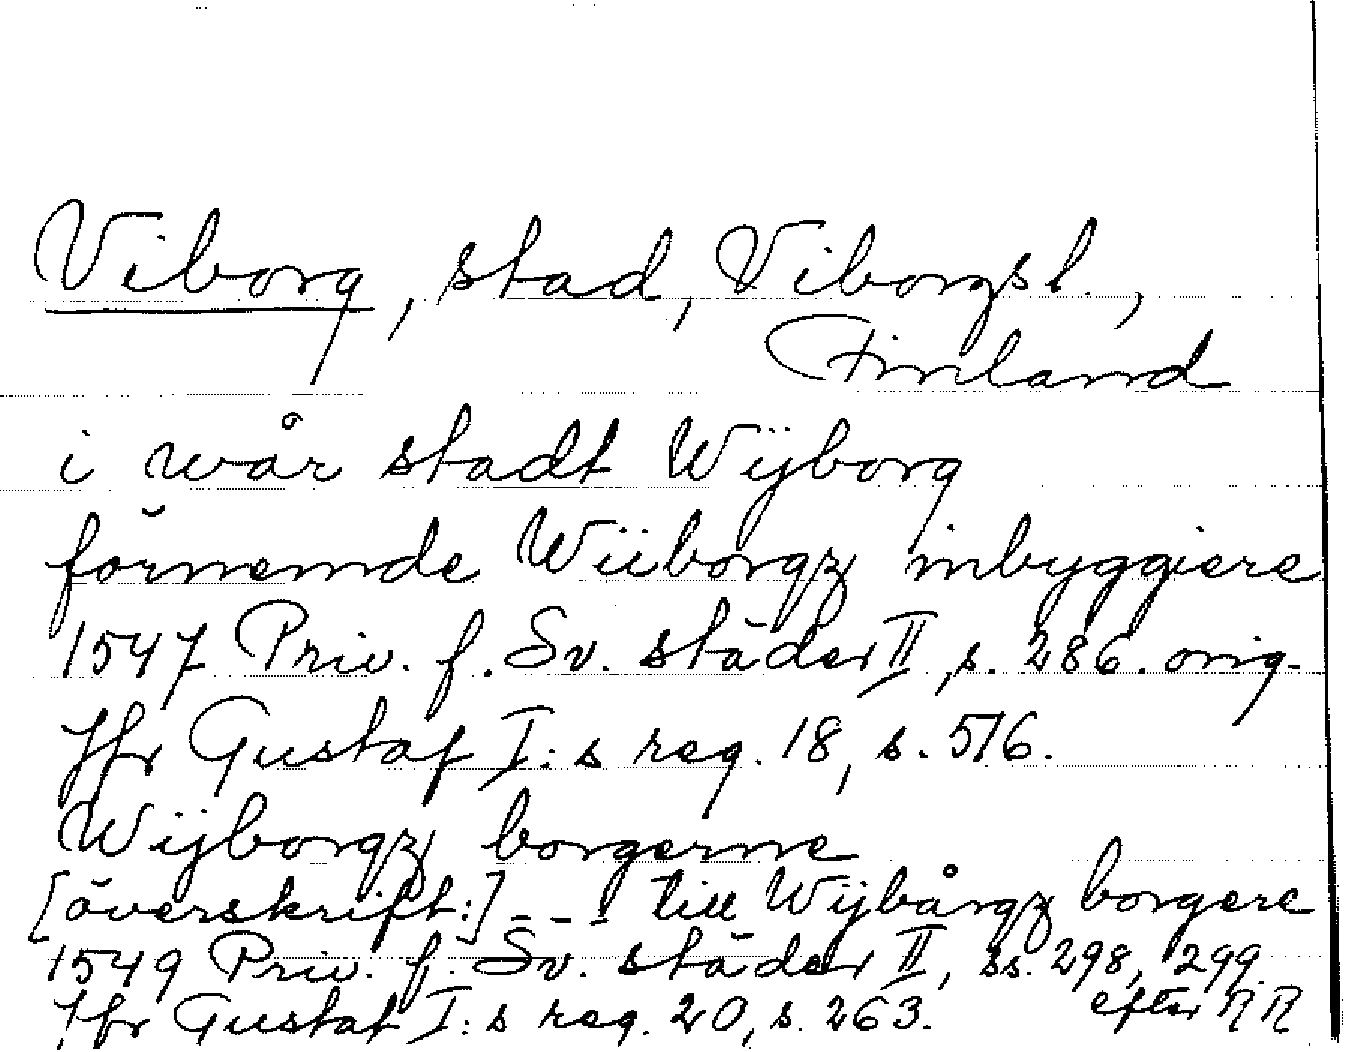 Viborg, stad, Viborgsl.,
Finland
i wår stadt Wijborg
förnemde Wiiborgz inbyggiere
1547 Priv. f. Sv. städer II, s. 286. orig.
Jfr Gustaf I:s reg. 18, s. 516.
Wijborgz borgerne
[överskrift:] - - - till Wijbårgz borgere
1549 Priv. f. Sv. städer II, ss. 298, 299.
Jfr Gustaf I:s reg. 20, s. 263. efter RR